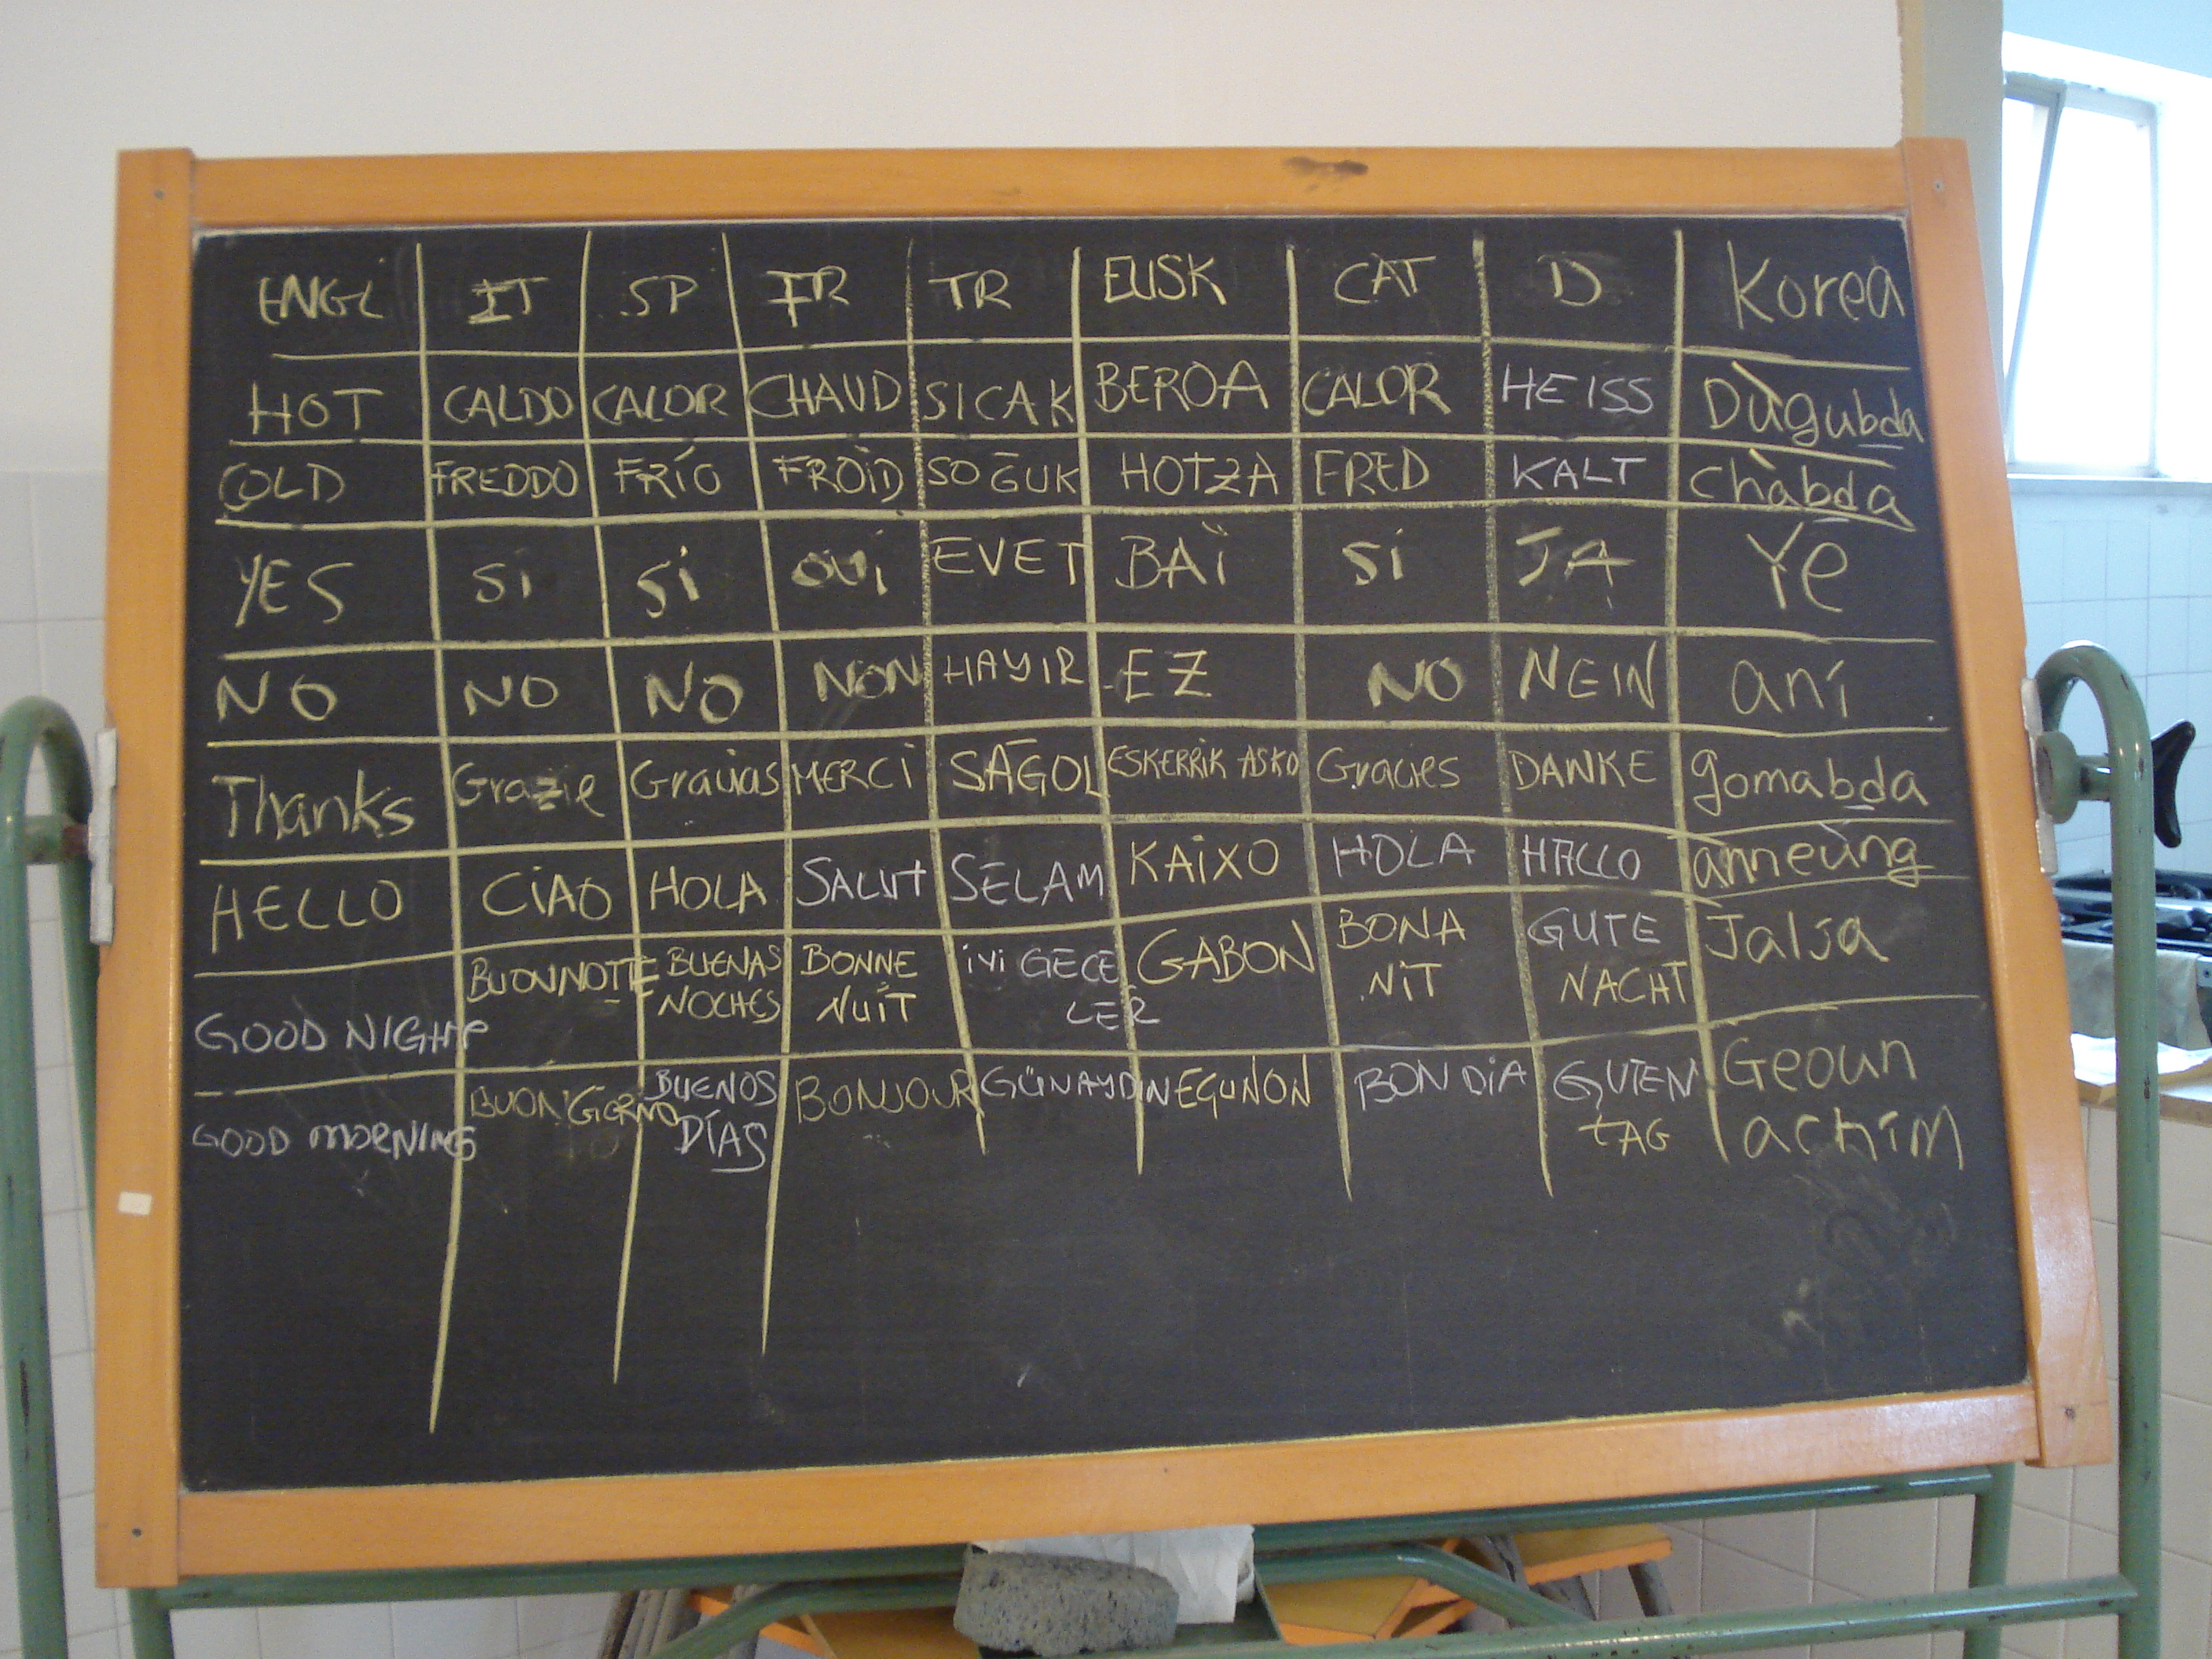 ENGL IT SP FR TR EUSK CAT D Korea
HOT CALDO CALOR CHAUD SICAK BEROA CALOR HEISS Dùgubda
COLD FREDDO FRÍO FROID SOĞUK HOTZA FRED KALT chàbda
YES Si Si OUi EVET BAÏ Si JA Ye
NO NO NO NON HAYIR EZ NO NEIN aní
Thanks Grazie Gracias MERCi SAĞOL ESKERRIK ASKO Gracies DANKE gomabda
HELLO CiAO HOLA SALUt SELAM KAiXO HOLA HALLO anneùng
GOOD NIGHT BUONNOTTE BUENAS NOCHES BONNE NUIT iYi GECELER GABON BONA NiT GUTE NACHT Jalja
GOOD MORNING BUON GiORNO BUENOS DÍAS BONJOUR GÜNAYDIN EGUNON BON DiA GUTEN tAG Geoun achim